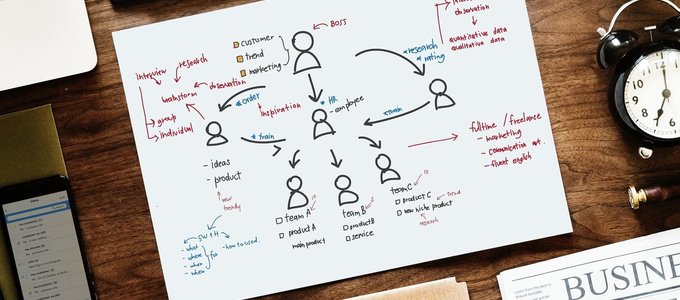 BOSS
customer
trend
marketing
observation
quantitative data
qualitative data
research
rating
Interview
research
observation
brainstorm
group
individual
order
inspiration
HR
- employee
train
train
- ideas
- product
new
trendy
5W+H
- what
- where
- when
- who
for
- how to used.
team A
10
product A
main product
team B
5
product B
service
team C
10
product C
trend
new niche product
research
fulltime / freelance
- marketing
- communication
- fluent english
12
6
BUSINE